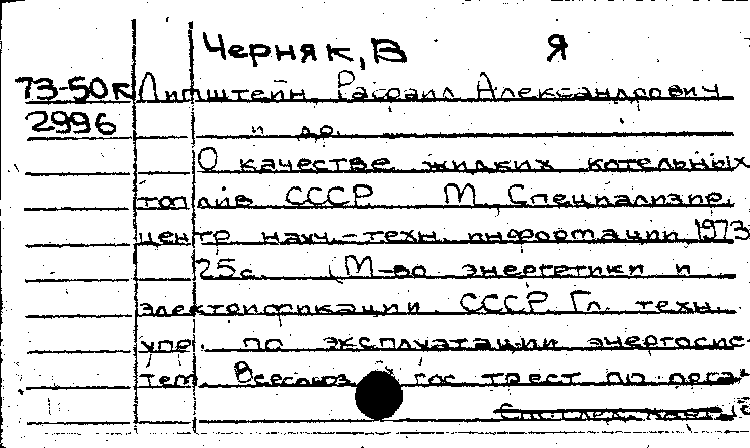 Черняк, В Я
73-50к Липштейн, Рафаил Александрович
2996 и др.
О качестве жидких котельных
топлив СССР М Специализир.
центр научн.-техн. информации 1973
25с. (М-во энергетики и
электрификации СССР. Гл. техн.
упр. по эксплуатации энергосис-
тем. Всесоюз гос трест по орга-
См. след. карт.